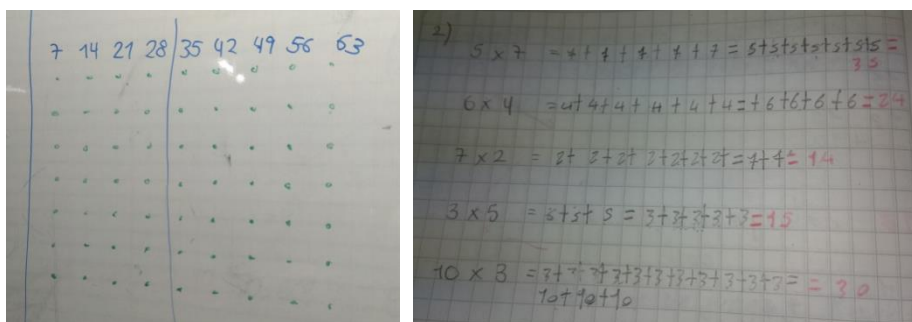 7 14 21 28 35 42 49 56 63
2)
5 x 7 = 7+7+7+7+7 = 5+5+5+5+5+5+5 =
35
6 x 4 = 4+4+4+4+4+4=+6+6+6+6=24
7 x 2 = 2+2+2+2+2+2+2+=7+7=14
3 x 5 = 5+5+5 = 3+3+3+3+3=15
10 x 3 = 3+3+3+3+3+3+3+3+3+3= = 30
10+10+10